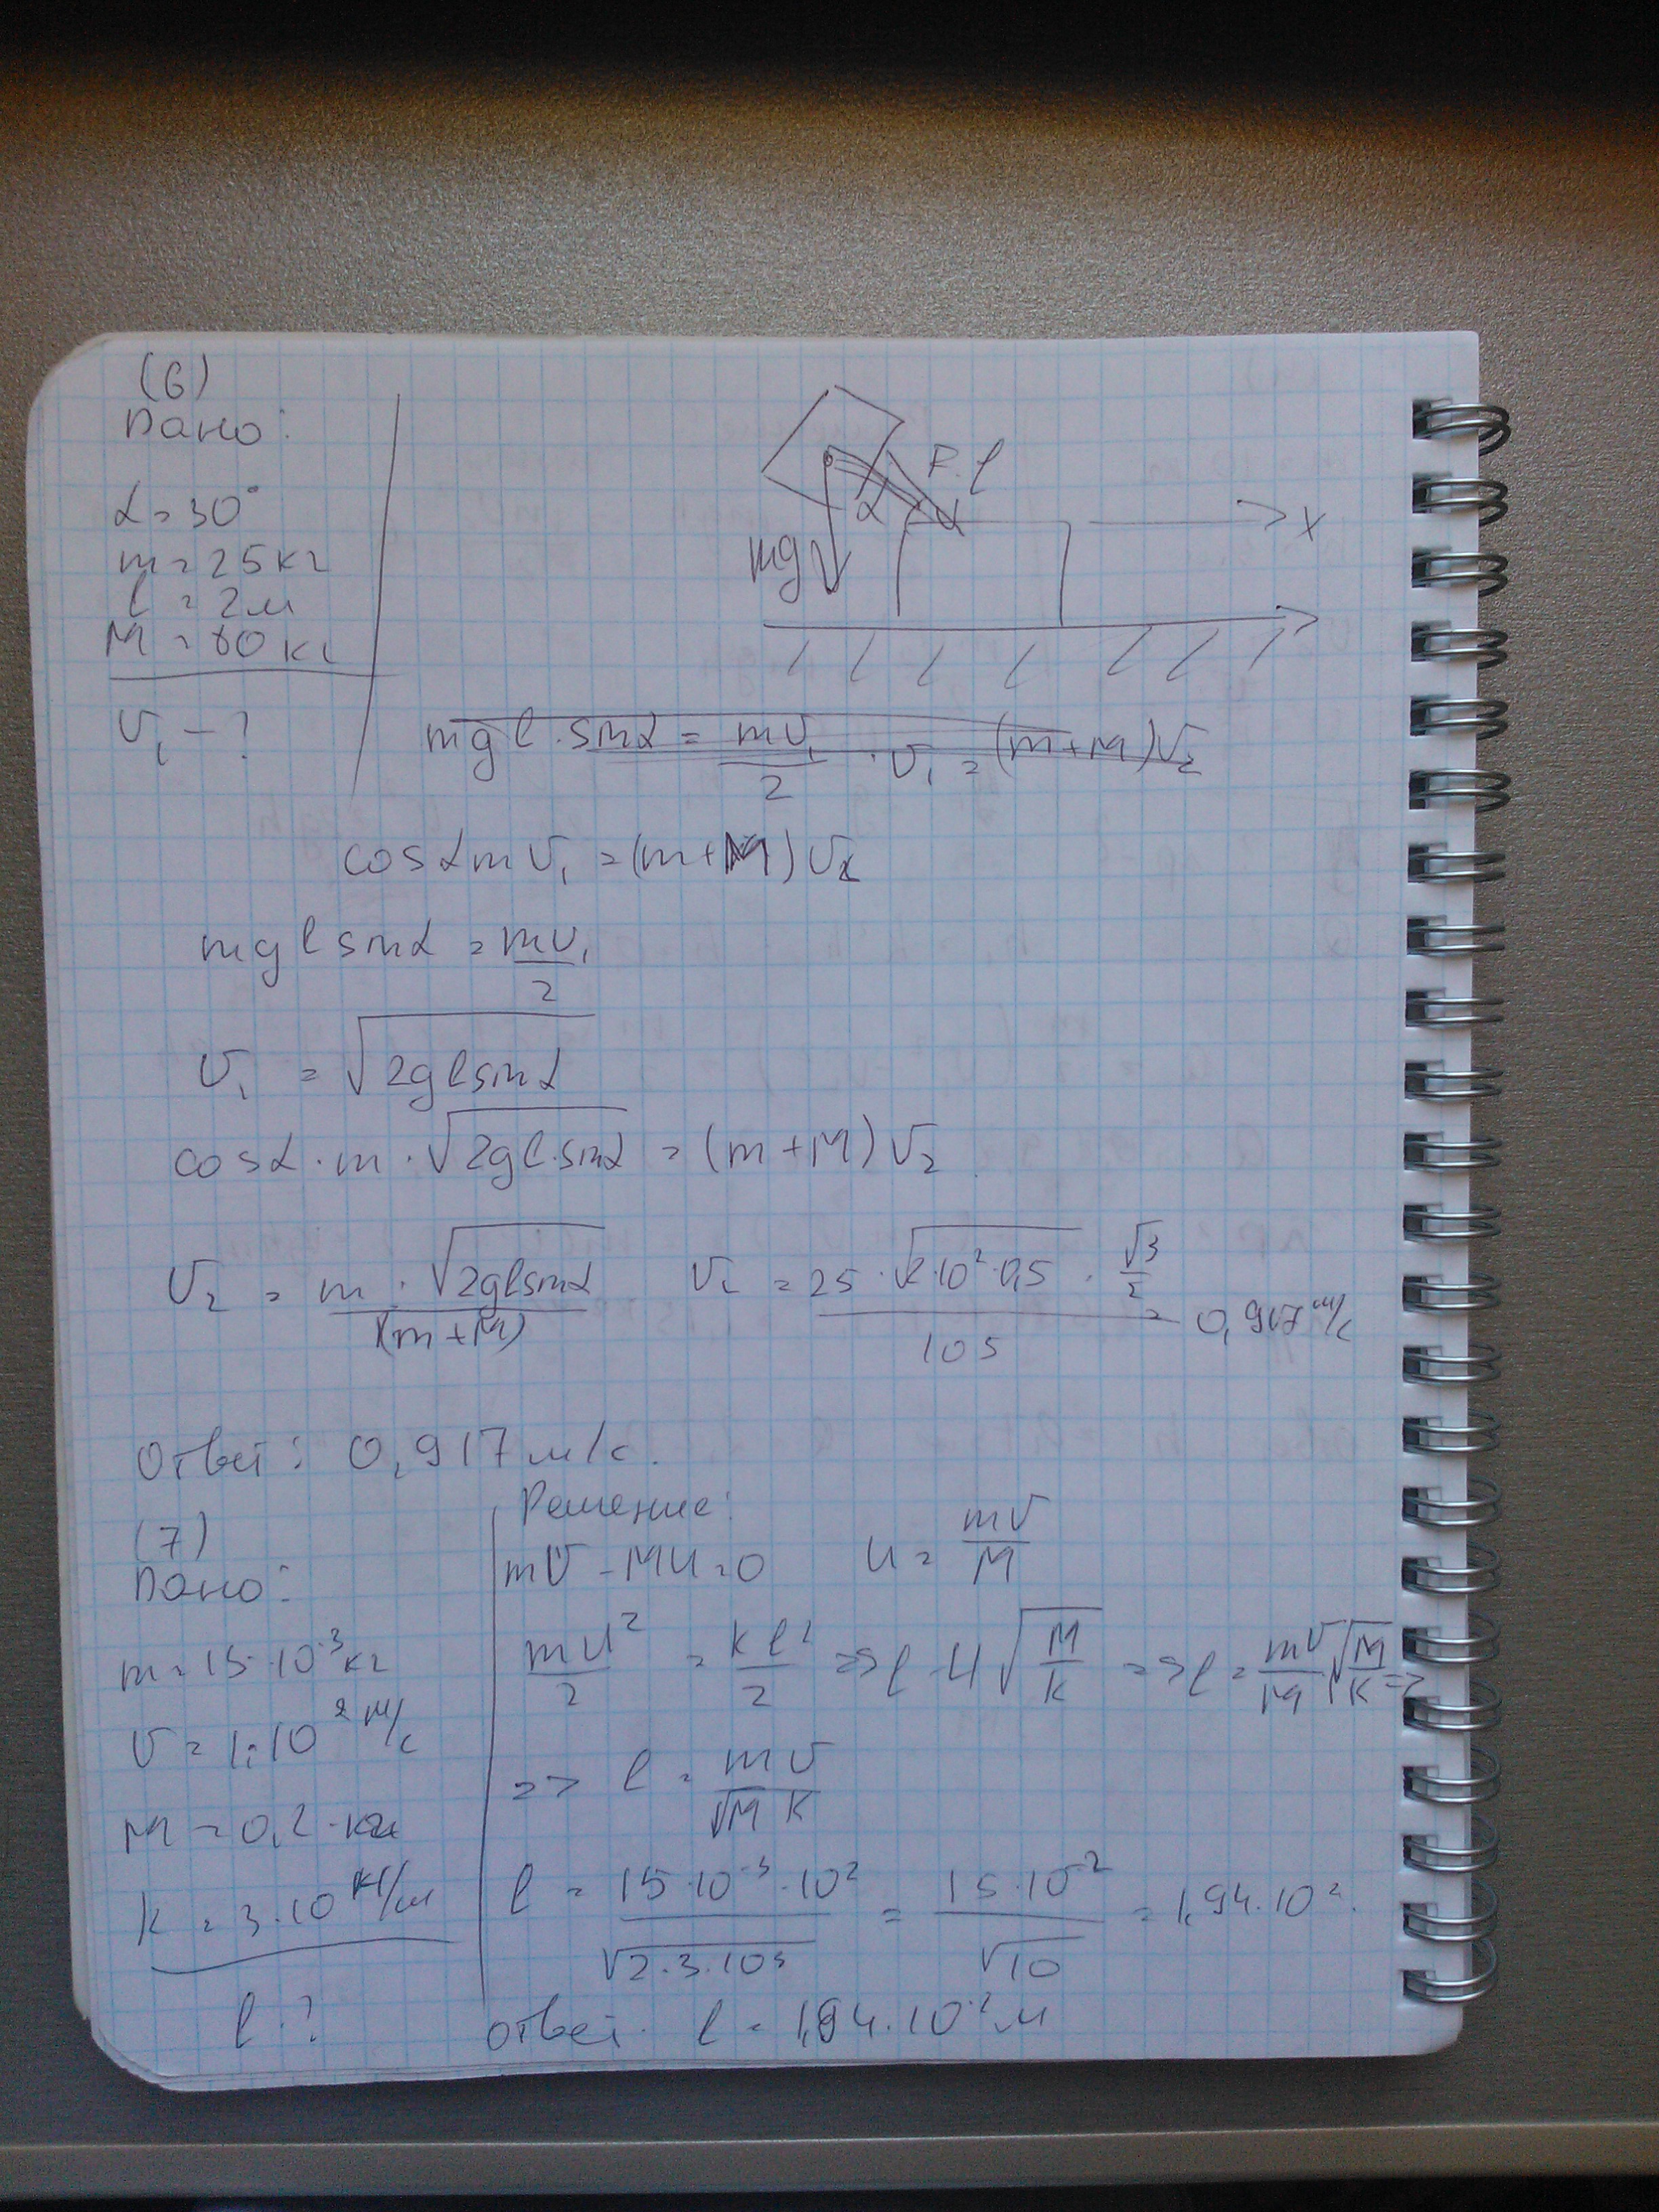 (6)
Дано:
α = 30°
m = 25 кг
l = 2 м
M = 80 кг
υ₁ - ?
F. l
α
mg
X
mgl · sinα = mυ₁/2 · υ₁ = (m+M)υ₂
cosα m υ₁ = (m+M)υ₂
mgl sinα = mυ₁/2
υ₁ = √(2gl sinα)
cosα · m · √(2gl · sinα) = (m+M)υ₂
υ₂ = m · √(2gl sinα)/(m+M) υ₂ = 25 · √(2·10²·0,5) · √3/2 / 105 = 0,917 м/с
Ответ: 0,917 м/с.
(7)
Дано:
m = 15·10⁻³ кг
υ = 1·10² м/с
M = 0,2 · кг
k = 3·10 кН/м
l - ?
Решение:
mυ - Mu = 0 u = mυ/M
mu²/2 = kl²/2 => l - u√(M/k) => l = mυ/M √(M/k) =>
=> l = mυ/√(M k)
l = 15·10⁻³·10²/√(2·3·10³) = 15·10⁻²/√10 = 1,94·10².
Ответ. l = 1,94·10⁻² м